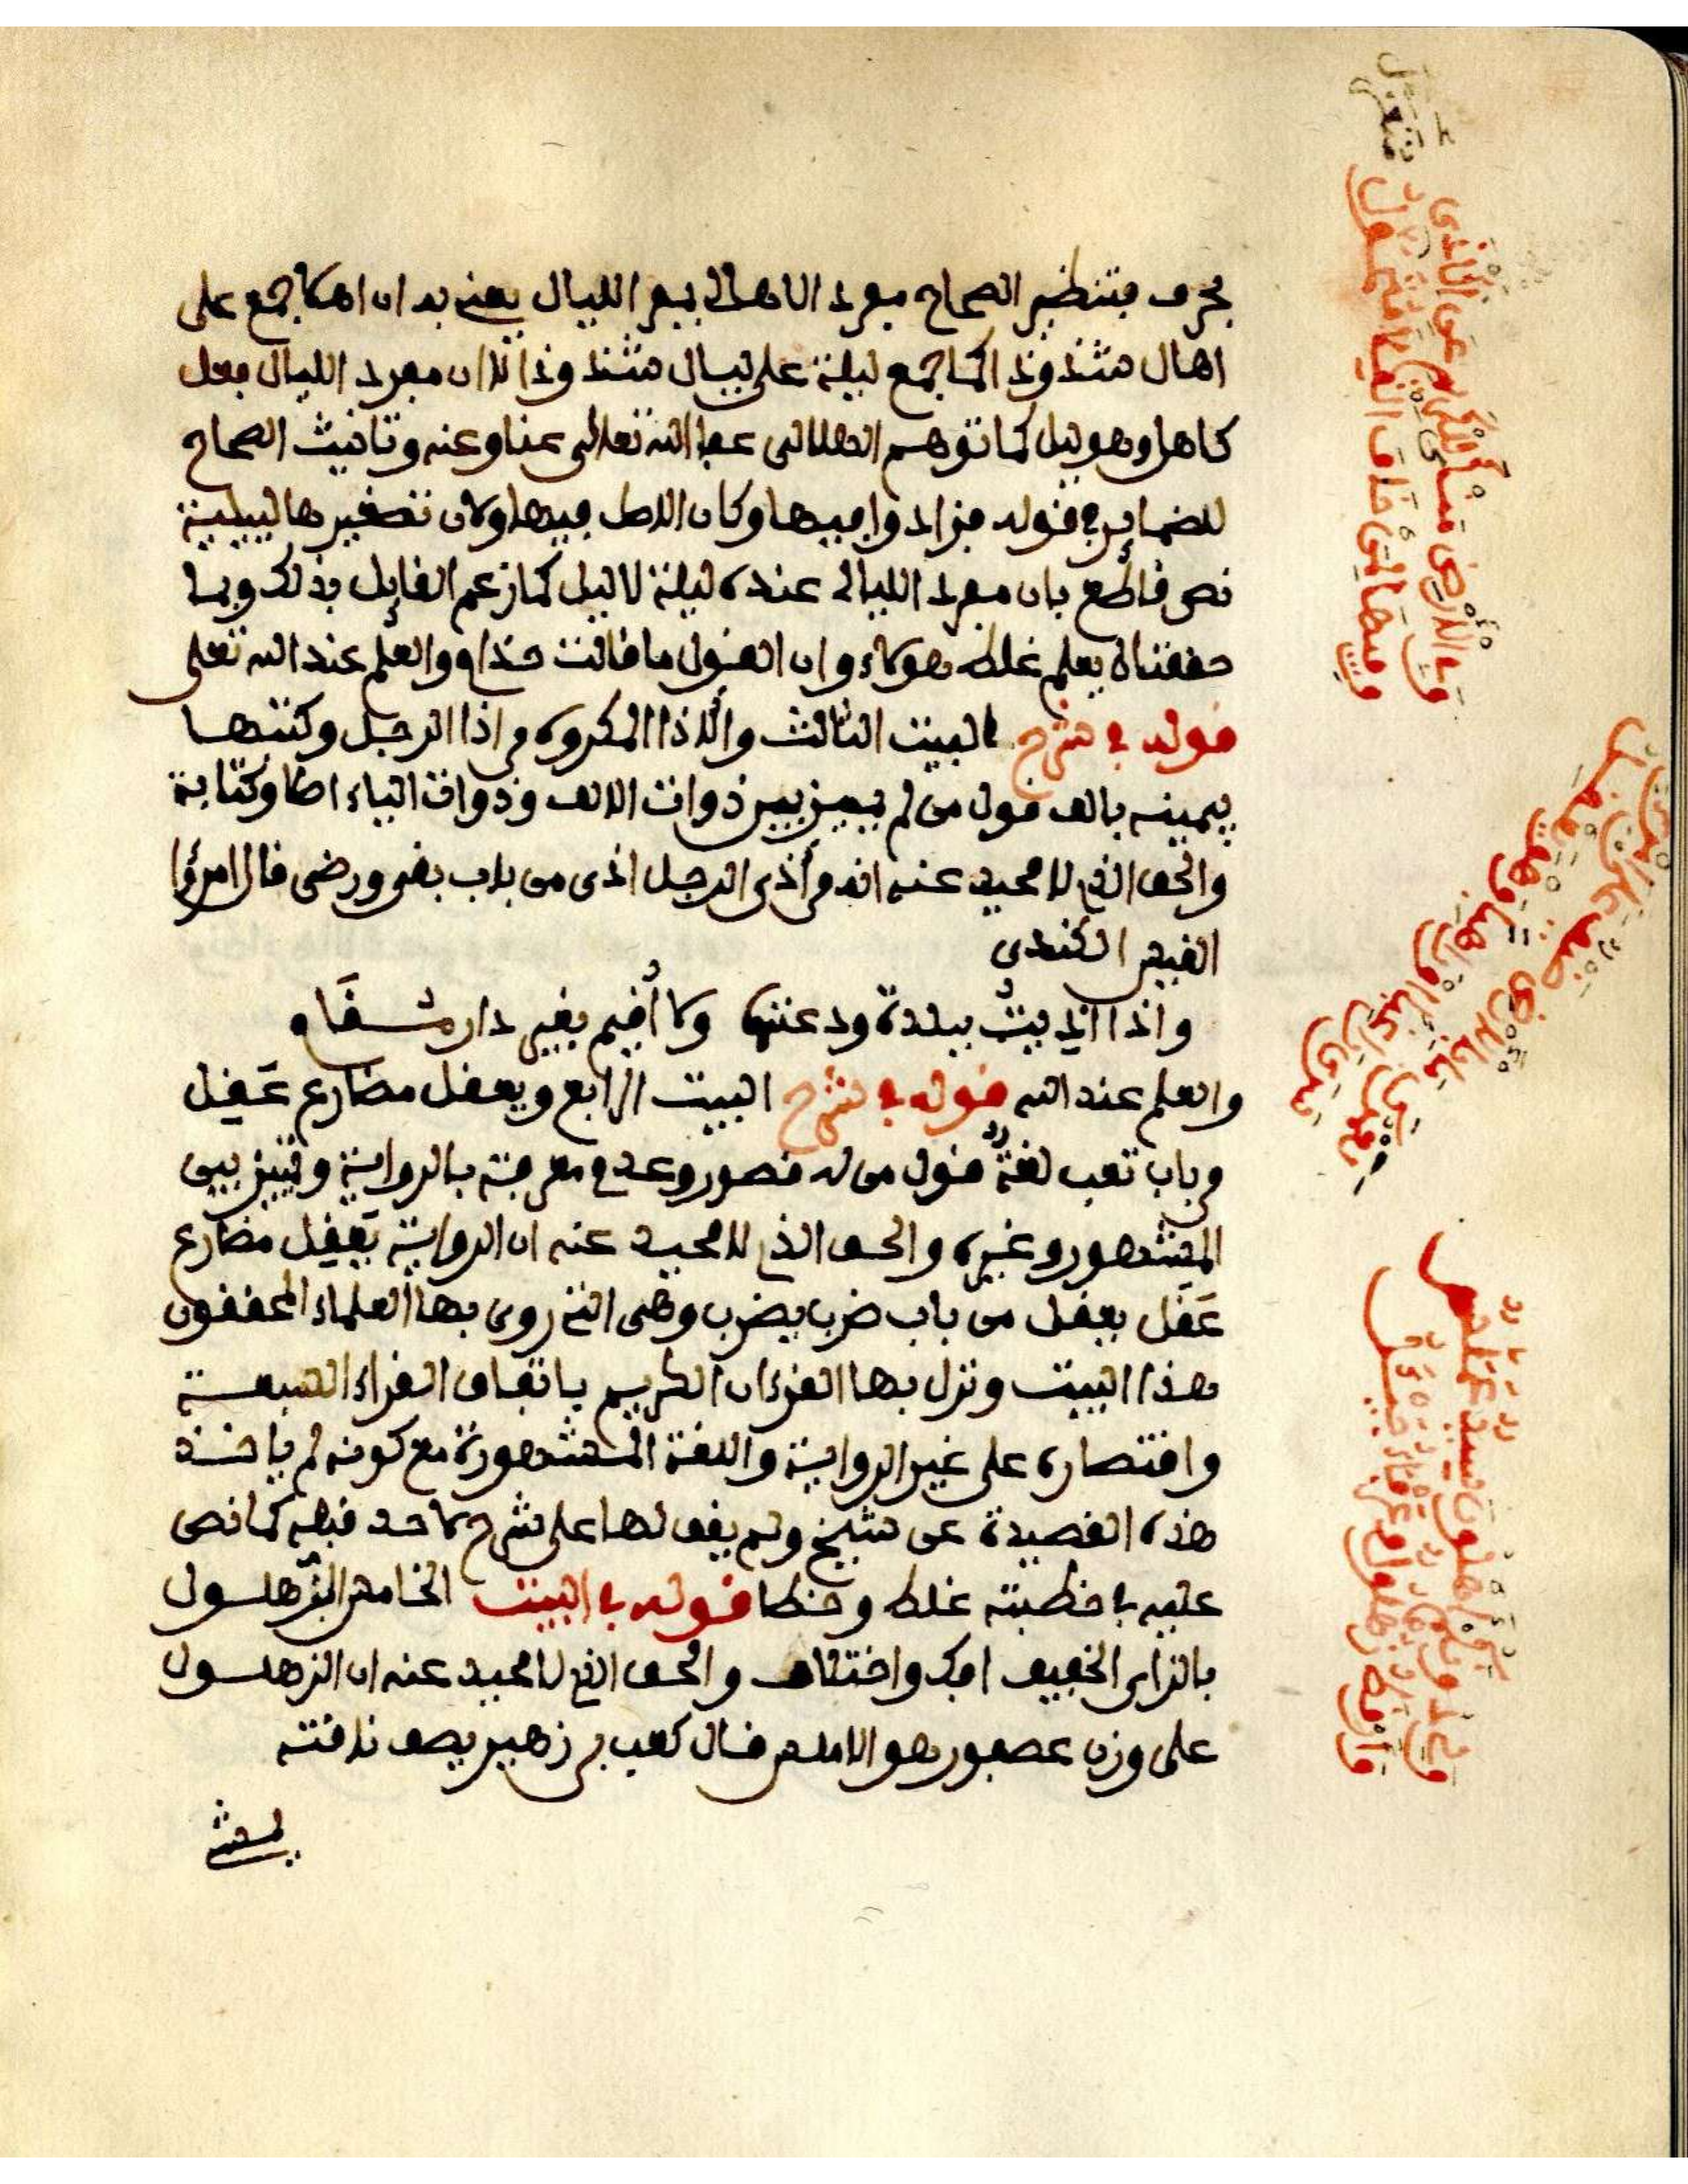 بحرف فتنظير الصحاح مفرد الاهالى بمفرد الليال يعنى به ان اهلا جمع على
اهال شذوذا كما جمع ليلة على ليال شذوذا لا ان مفرد الليال فعل
كاهل وهو ليل كما توهم الهلالى عفا الله تعالى عنا وعنه وتانيث الصحاح
للضماير في قوله فزادوا فيها وكان الاصل فيها ولان تصغيرها لييلية
نص قاطع بان مفرد الليالى عنده ليلة لا ليل كما زعم القايل بذلك وبما
حققناه يعلم غلط هؤلاء وان القول ما قالت حذام والعلم عند الله تعلى
قوله في شرح البيت الثالث والاذا المكروه من اذا الرجل وكتبها
بيمينه بالف قول من لم يميز بين ذوات الالف وذوات الياء اصلا وكتابة
والحق الذي لا محيد عنه انه من أذي الرجل اذى من باب بقي ورضى قال امرؤا
القيس الكندى
واذا اذيت ببلدة ودعتها ولا أقيم بغير دار مقام
والعلم عند الله قوله في شرح البيت الرابع ويعقل مضارع عَقِل
من باب تعب لغة قول من له قصور وعدم معرفة بالرواية وتمييز بين
المشهور وغيره والحق الذي لا محيد عنه ان الرواية يَعْقِل مضارع
عَقَل يعقل من باب ضرب يضرب وهى التي روى بها العلماء المحققون
هذا البيت ونزل بها القرءان الكريم باتفاق القراء السبعة
واقتصاره على غير الرواية واللغة المشهورة مع كونه لم ياخذ
هذه القصيدة عن شيخ ولم يقف لها على شرح لاحد قبله كما نص
عليه في خطبته غلط وخطا قوله في البيت الخامس الزهلول
بالزاى الخفيف افك واختلاف والحق الذي لا محيد عنه ان الزهلول
على وزن عصفور هو الاملس قال كعب بن زهير يصف ناقته
يمشى
وفي الارض منأى للكريم عن الاذى
وفيها لمن خاف القلى متعزل
لعمرك ما في الارض ضيق على امرئ
سرى راغبا او راهبا وهو يعقل
ولي دونكم اهلون سيد عملس
وارقط زهلول وعرفاء جيئل